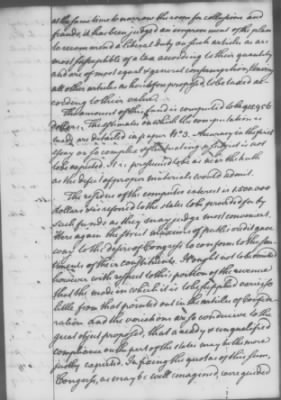 at the same time to narrow the room for collusion and
frauds, it has been judged an improvement of the plan
to recommend a liberal duty on such articles as are
most susceptible of a tax according to their quantity
and are of most equal & general consumption, leaving
all other articles as heretofore proposed, to be taxed ac-
cording to their value.
The amount of this fund is computed to be 915.956
dollars. The estimates on which the computation is
made are detailed in paper No. 3. Accuracy in the first
essay on so complex & fluctuating a subject is not
to be expected. It is presumed to be as near the truth
as the defect of proper materials would admit.
The residue of the computed interest is 1.500.000
dollars & is referred to the states to be provided for by
such funds as they may judge most convenient.
Here again the strict maxims of public credit gave
way to the desire of Congress to conform to the sen-
timents of their constituents. It ought not to be omitted
however with respect to this portion of the revenue
that the mode in which it is to be supplied varies so
little from that pointed out in the articles of Confede-
ration and the variations are so conducive to the
great object proposed, that a ready & unqualified
compliance on the part of the states may be the more
justly expected. In fixing the quotas of this sum,
Congress, as may be well imagined, were guided